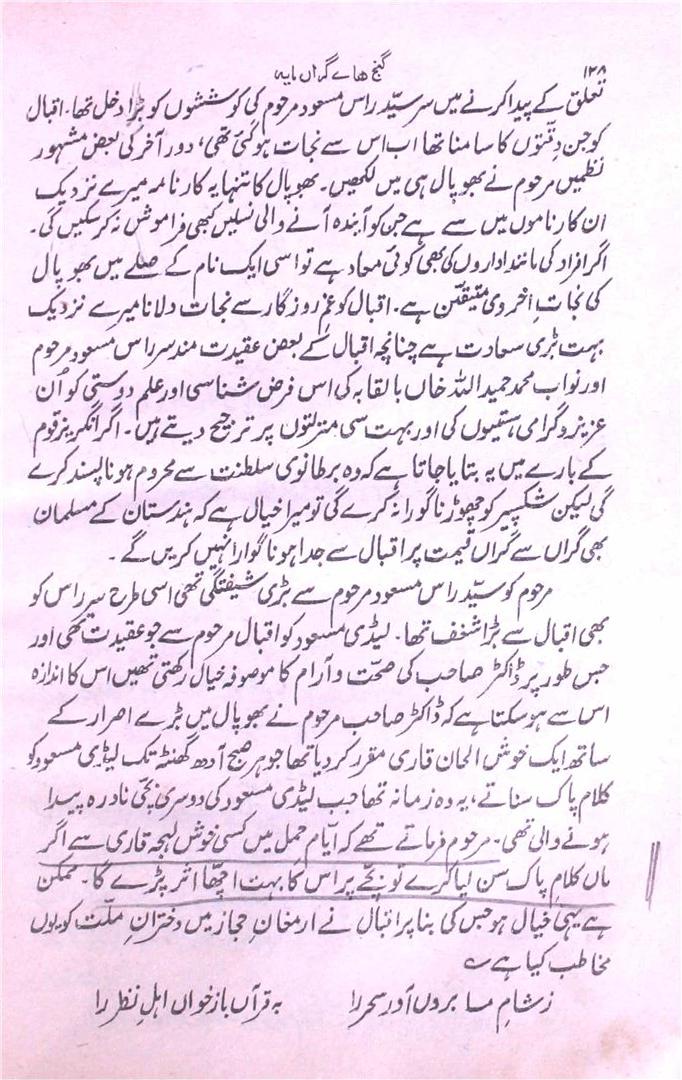 ۱۲۸
گنج ھاے گراں مایہ
تعلق کے پیدا کرنے میں سر سیّد راس مسعود مرحوم کی کوششوں کو بڑا دخل تھا۔ اقبال
کو جن دقتوں کا سامنا تھا اب اس سے نجات ہو گئی تھی، دور آخر کی بعض مشہور
نظمیں مرحوم نے بھوپال ہی میں لکھیں۔ بھوپال کا تنہا یہ کارنامہ میرے نزدیک
ان کارناموں میں سے ہے جن کو آیندہ آنے والی نسلیں کبھی فراموش نہ کر سکیں گی۔
اگر افراد کی مانند اداروں کی بھی کوئی معاد ہے تو اسی ایک نام کے صلے میں بھوپال
کی نجاتِ اخروی متیقّن ہے۔ اقبال کو غمِ روزگار سے نجات دلانا میرے نزدیک
بہت بڑی سعادت ہے چنانچہ اقبال کے بعض عقیدت مند سر راس مسعود مرحوم
اور نواب محمد حمید اللہ خاں بالقابہ کی اس فرض شناسی اور علم دوستی کو اُن
عزیز و گرامی ہستیوں کی اور بہت سی منزلتوں پر ترجیح دیتے ہیں۔ اگر انگریز قوم
کے بارے میں یہ بتایا جاتا ہے کہ وہ برطانوی سلطنت سے محروم ہونا پسند کرے
گی لیکن شکسپیر کو چھوڑنا گوارا نہ کرے گی تو میرا خیال ہے کہ ہندستان کے مسلمان
بھی گراں سے گراں قیمت پر اقبال سے جدا ہونا گوارا نہیں کریں گے۔
مرحوم کو سیّد راس مسعود مرحوم سے بڑی شیفتگی تھی اسی طرح سر راس کو
بھی اقبال سے بڑا شغف تھا۔ لیڈی مسعود کو اقبال مرحوم سے جو عقیدت تھی اور
جس طور پر ڈاکٹر صاحب کی صحّت و آرام کا موصوفہ خیال رکھتی تھیں اس کا اندازہ
اس سے ہو سکتا ہے کہ ڈاکٹر صاحب مرحوم نے بھوپال میں بڑے اصرار کے
ساتھ ایک خوش الحان قاری مقرر کر دیا تھا جو ہر صبح آدھ گھنٹہ تک لیڈی مسعود کو
کلام پاک سناتے، یہ وہ زمانہ تھا جب لیڈی مسعود کی دوسری بچّی نادرہ پیدا
ہونے والی تھی۔ مرحوم فرماتے تھے کہ ایّام حمل میں کسی خوش لہجہ قاری سے اگر
ماں کلامِ پاک سن لیا کرے تو بچّے پر اس کا بہت اچھّا اثر پڑے گا۔ ممکن
ہے یہی خیال ہو جس کی بنا پر اقبال نے ارمغانِ حجاز میں دخترانِ ملّت کو یوں
مخاطب کیا ہے ؎
ز شامِ ما بروں آور سحر را بہ قرآں باز خواں اہلِ نظر را